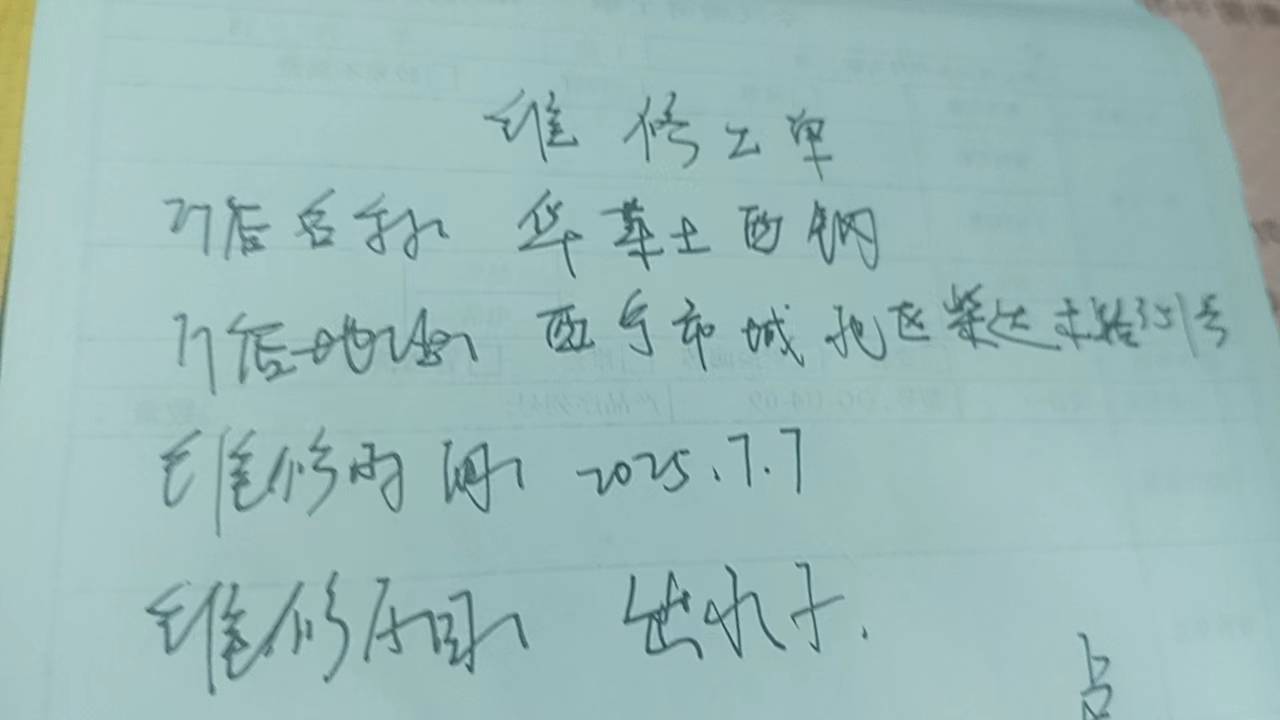 维修工单
门店名称: 华莱士西钢
门店地址: 西宁市城北区柴达木路351号
维修时间: 2025.7.7
维修原因: 出水小.